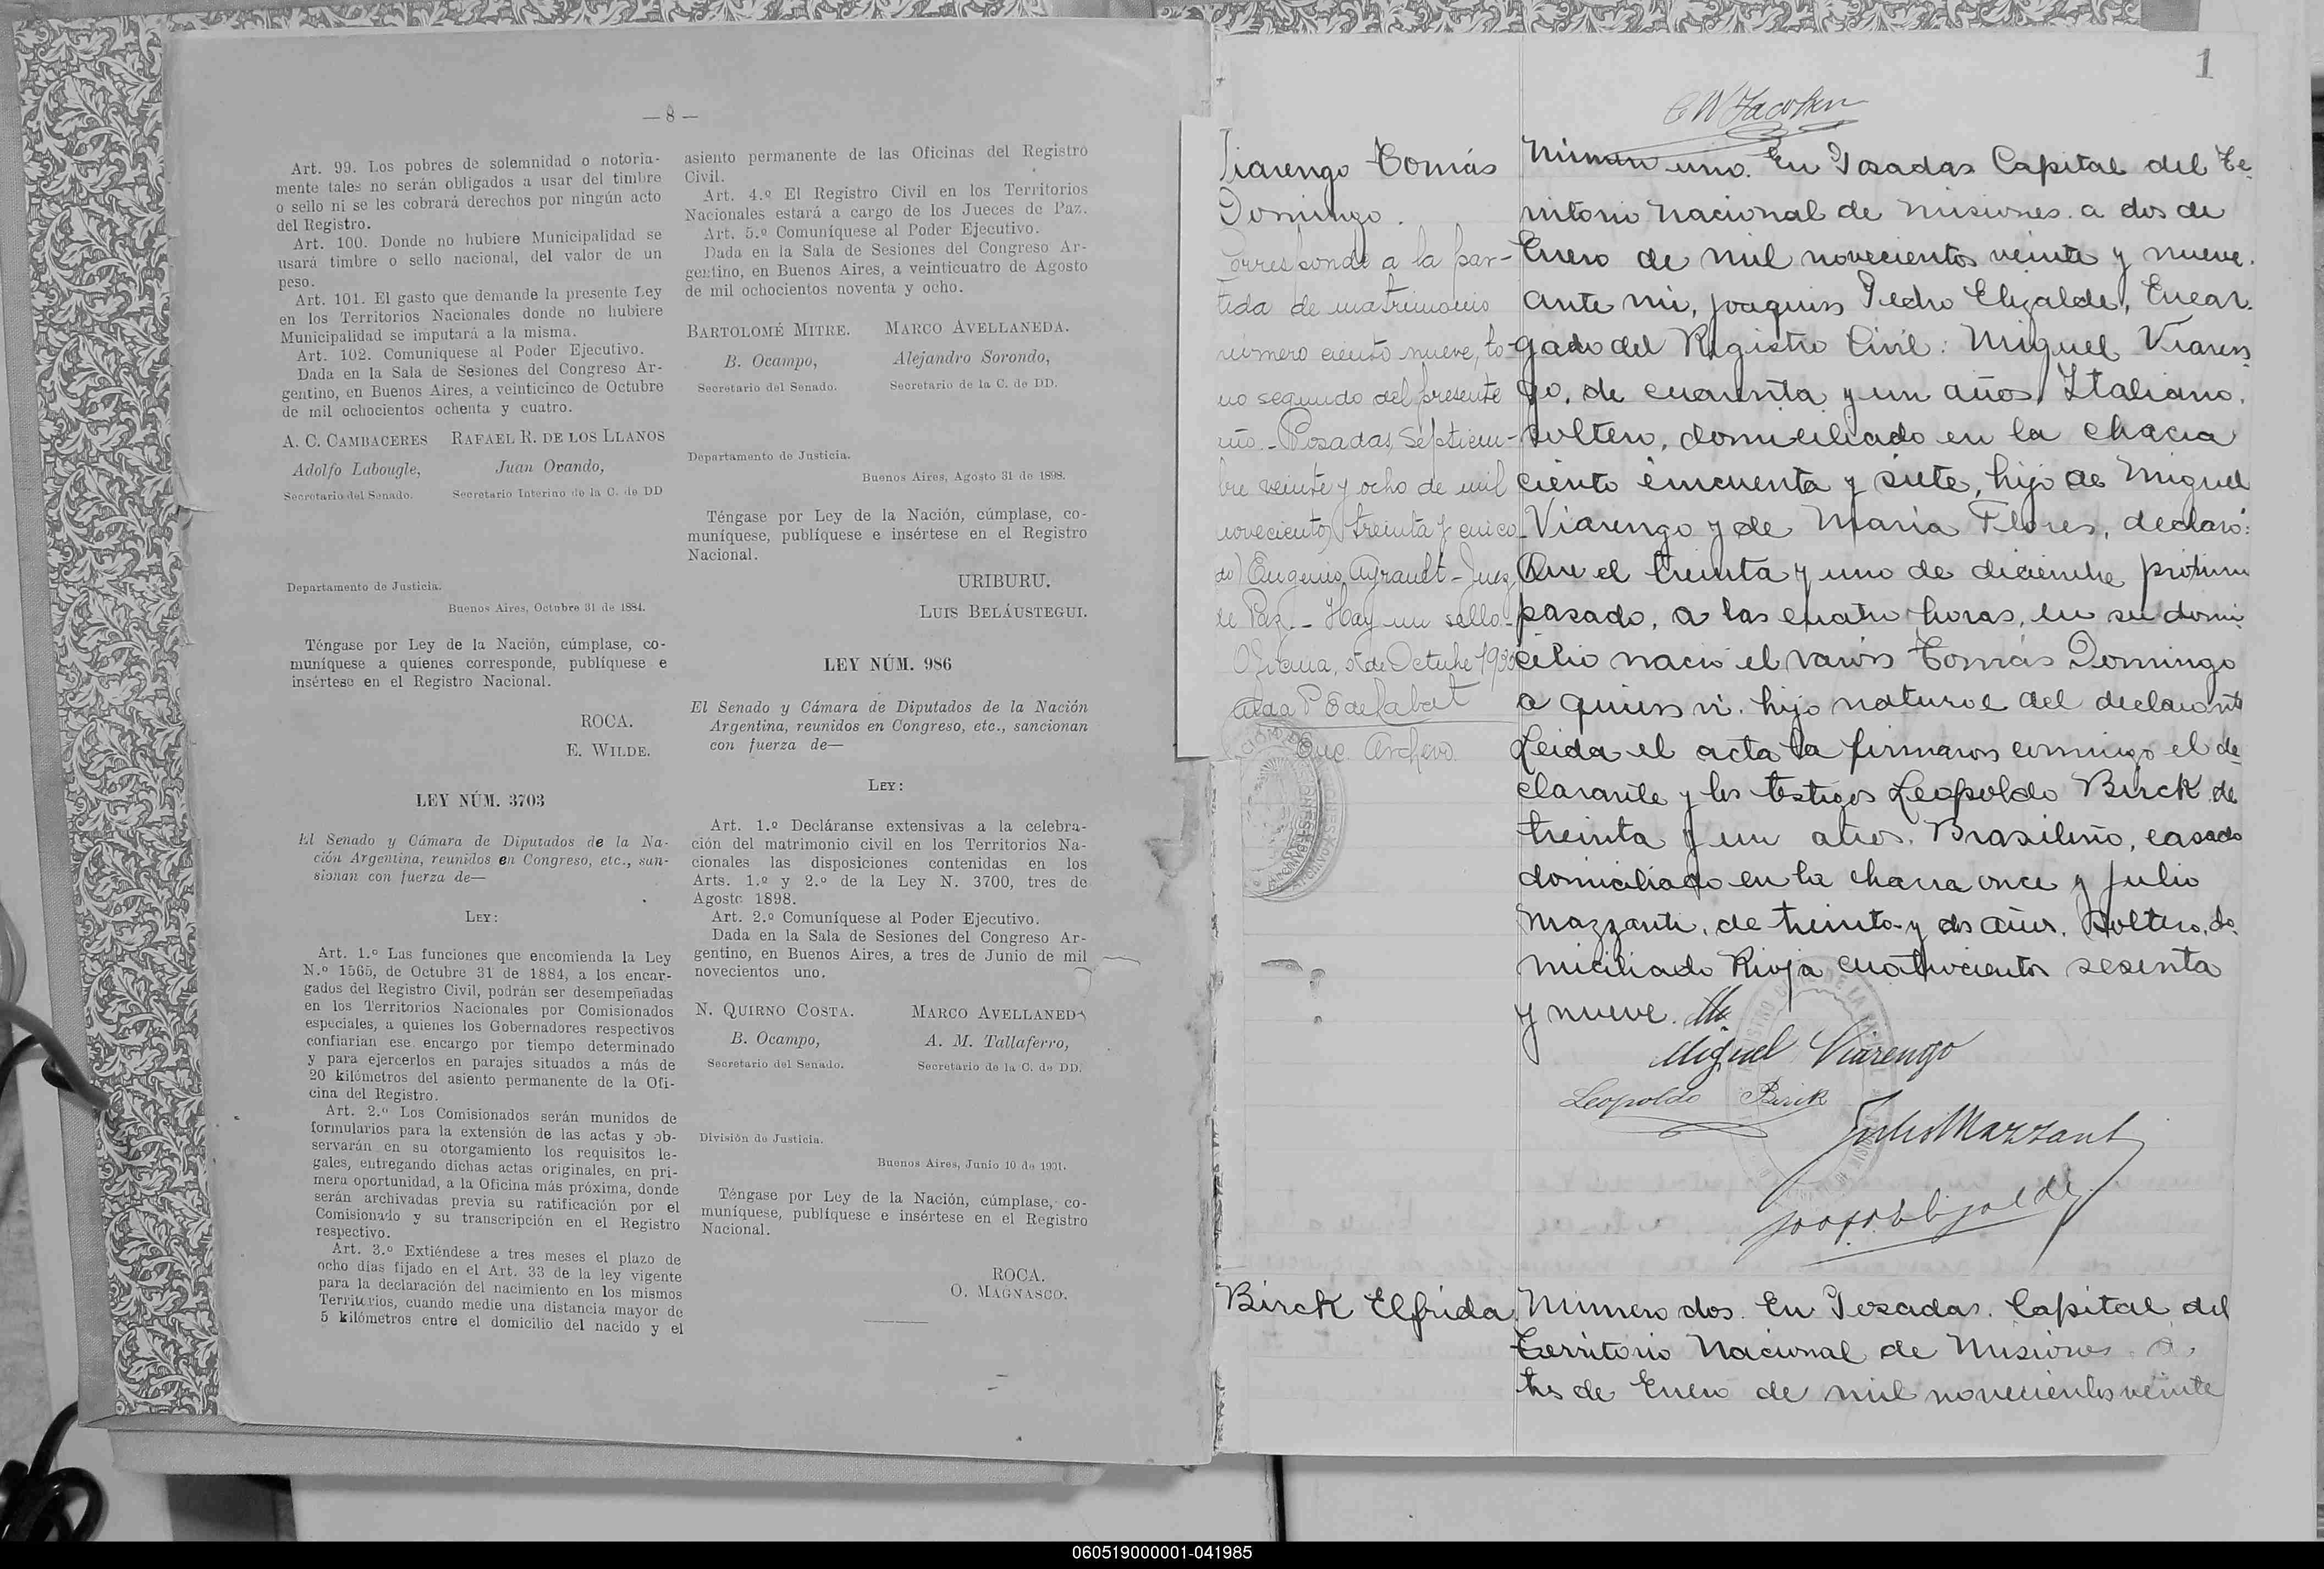 — 8 —
Art. 99. Los pobres de solemnidad o notoria-
mente tales no serán obligados a usar del timbre
o sello ni se les cobrará derechos por ningún acto
del Registro.
Art. 100. Donde no hubiere Municipalidad se
usará timbre o sello nacional, del valor de un
peso.
Art. 101. El gasto que demande la presente Ley
en los Territorios Nacionales donde no hubiere
Municipalidad se imputará a la misma.
Art. 102. Comuníquese al Poder Ejecutivo.
Dada en la Sala de Sesiones del Congreso Ar-
gentino, en Buenos Aires, a veinticinco de Octubre
de mil ochocientos ochenta y cuatro.
A. C. CAMBACERES RAFAEL R. DE LOS LLANOS
Adolfo Labougle, Juan Ovando,
Secretario del Senado. Secretario Interino de la C. de DD
Departamento de Justicia.
Buenos Aires, Octubre 31 de 1884.
Téngase por Ley de la Nación, cúmplase, co-
muníquese a quienes corresponde, publíquese e
insértese en el Registro Nacional.
ROCA.
E. WILDE.
LEY NÚM. 3703
El Senado y Cámara de Diputados de la Na-
ción Argentina, reunidos en Congreso, etc., san-
sionan con fuerza de—
LEY:
Art. 1.º Las funciones que encomienda la Ley
N.º 1565, de Octubre 31 de 1884, a los encar-
gados del Registro Civil, podrán ser desempeñadas
en los Territorios Nacionales por Comisionados
especiales, a quienes los Gobernadores respectivos
confiarían ese encargo por tiempo determinado
y para ejercerlos en parajes situados a más de
20 kilómetros del asiento permanente de la Ofi-
cina del Registro.
Art. 2.º Los Comisionados serán munidos de
formularios para la extensión de las actas y ob-
servarán en su otorgamiento los requisitos le-
gales, entregando dichas actas originales, en pri-
mera oportunidad, a la Oficina más próxima, donde
serán archivadas previa su ratificación por el
Comisionado y su transcripción en el Registro
respectivo.
Art. 3.º Extiéndese a tres meses el plazo de
ocho días fijado en el Art. 33 de la ley vigente
para la declaración del nacimiento en los mismos
Territorios, cuando medie una distancia mayor de
5 kilómetros entre el domicilio del nacido y el
asiento permanente de las Oficinas del Registro
Civil.
Art. 4.º El Registro Civil en los Territorios
Nacionales estará a cargo de los Jueces de Paz.
Art. 5.º Comuníquese al Poder Ejecutivo.
Dada en la Sala de Sesiones del Congreso Ar-
gentino, en Buenos Aires, a veinticuatro de Agosto
de mil ochocientos noventa y ocho.
BARTOLOMÉ MITRE. MARCO AVELLANEDA.
B. Ocampo, Alejandro Sorondo,
Secretario del Senado. Secretario de la C. de DD.
Departamento de Justicia.
Buenos Aires, Agosto 31 de 1898.
Téngase por Ley de la Nación, cúmplase, co-
muníquese, publíquese e insértese en el Registro
Nacional.
URIBURU.
LUIS BELÁUSTEGUI.
LEY NÚM. 986
El Senado y Cámara de Diputados de la Nación
Argentina, reunidos en Congreso, etc., sancionan
con fuerza de—
LEY:
Art. 1.º Decláranse extensivas a la celebra-
ción del matrimonio civil en los Territorios Na-
cionales las disposiciones contenidas en los
Arts. 1.º y 2.º de la Ley N. 3700, tres de
Agosto 1898.
Art. 2.º Comuníquese al Poder Ejecutivo.
Dada en la Sala de Sesiones del Congreso Ar-
gentino, en Buenos Aires, a tres de Junio de mil
novecientos uno.
N. QUIRNO COSTA. MARCO AVELLANEDA
B. Ocampo, A. M. Tallaferro,
Secretario del Senado. Secretario de la C. de DD.
División de Justicia.
Buenos Aires, Junio 10 de 1901.
Téngase por Ley de la Nación, cúmplase, co-
muníquese, publíquese e insértese en el Registro
Nacional.
ROCA.
O. MAGNASCO.
1
Viarengo Tomás
Domingo.
Corresponde a la par-
tida de matrimonio
número ciento nueve, to-
mo segundo del presente
año.- Posadas, Septiem-
bre veinte y ocho de mil
novecientos treinta y cinco
Eugenio Ayrault - Juez
de Paz.- Hay un sello.-
Oficina, 5 de Octubre 193
Enc. Archivo.
Número uno. En Posadas Capital del Te-
rritorio Nacional de Misiones. a dos de
Enero de mil novecientos veinte y nueve.
ante mi, Joaquin Pedro Elizalde, Encar-
gado del Registro Civil: Miguel Viaren-
go, de cuarenta y un años, Italiano.
soltero, domiciliado en la chacra
ciento cincuenta y siete, hijo de Miguel
Viarengo y de Maria Flores, declaró:
Que el treinta y uno de diciembre próximo
pasado, a las cuatro horas, en su domi-
cilio nació el varón Tomás Domingo
a quien vi. hijo natural del declarante
Leida el acta la firmaron conmigo el de-
clarante y los testigos Leopoldo Birck de
treinta y un años. Brasileño, casado
domiciliado en la chacra once y Julio
Mazzanti, de treinta y dos años. soltero, do-
miciliado Rioja cuatrocientos sesenta
y nueve.
Miguel Viarengo
Leopoldo Birck
Julio Mazzanti
Birck Elfrida
Número dos. En Posadas. Capital del
Territorio Nacional de Misiones a
tres de Enero de mil novecientos veinte
060519000001-041985